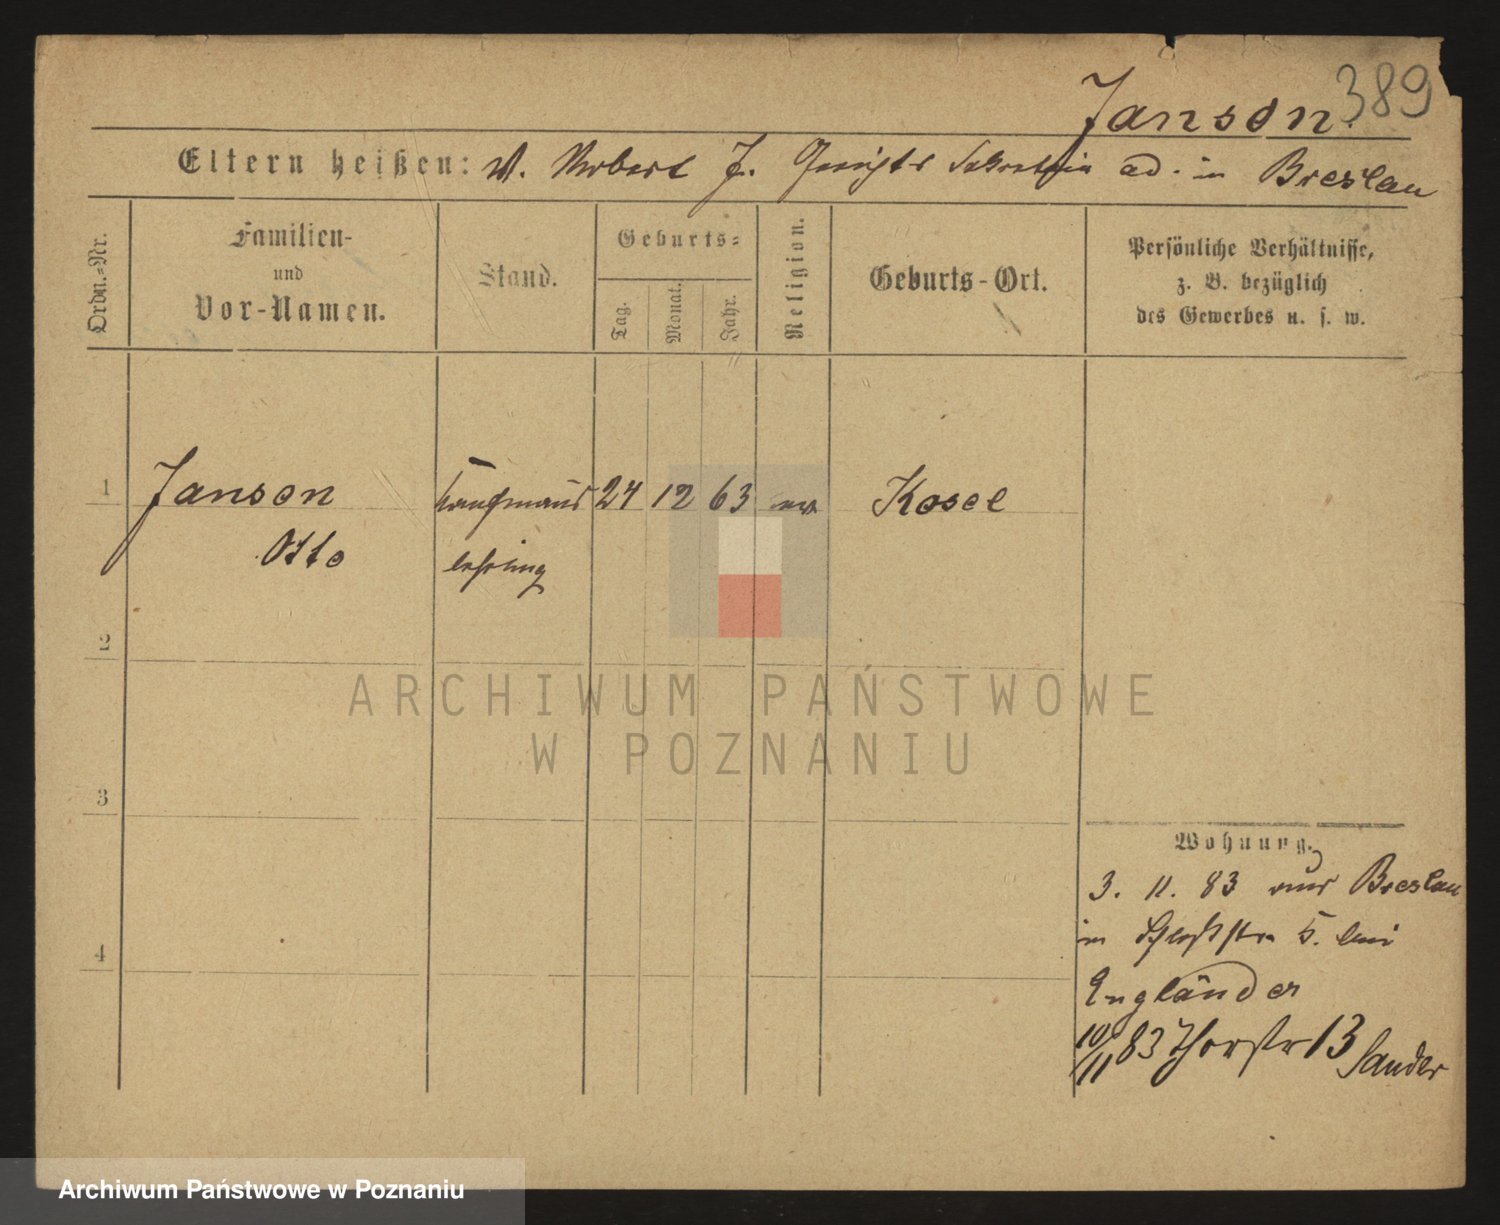 389
Janson.
Eltern heißen: V. Norbert J. Gerichts Sekretär a.D. in Breslau
Ordn.=Nr.
Familien-
und
Vor-Namen.
Stand.
Geburts=
Tag.
Monat.
Jahr.
Religion.
Geburts-Ort.
Persönliche Verhältnisse,
z. B. bezüglich
des Gewerbes u. s. w.
1 Janson Kaufmanns 24 12 63 ev Kosel
Otto lehrling
2
ARCHIWUM PAŃSTWOWE
W POZNANIU
3
Wohnung.
3. 11. 83 aus Breslau
in Schloßstr 5. bei
4
Engländer
10/11 83 Thorstr 13
Sander
Archiwum Państwowe w Poznaniu